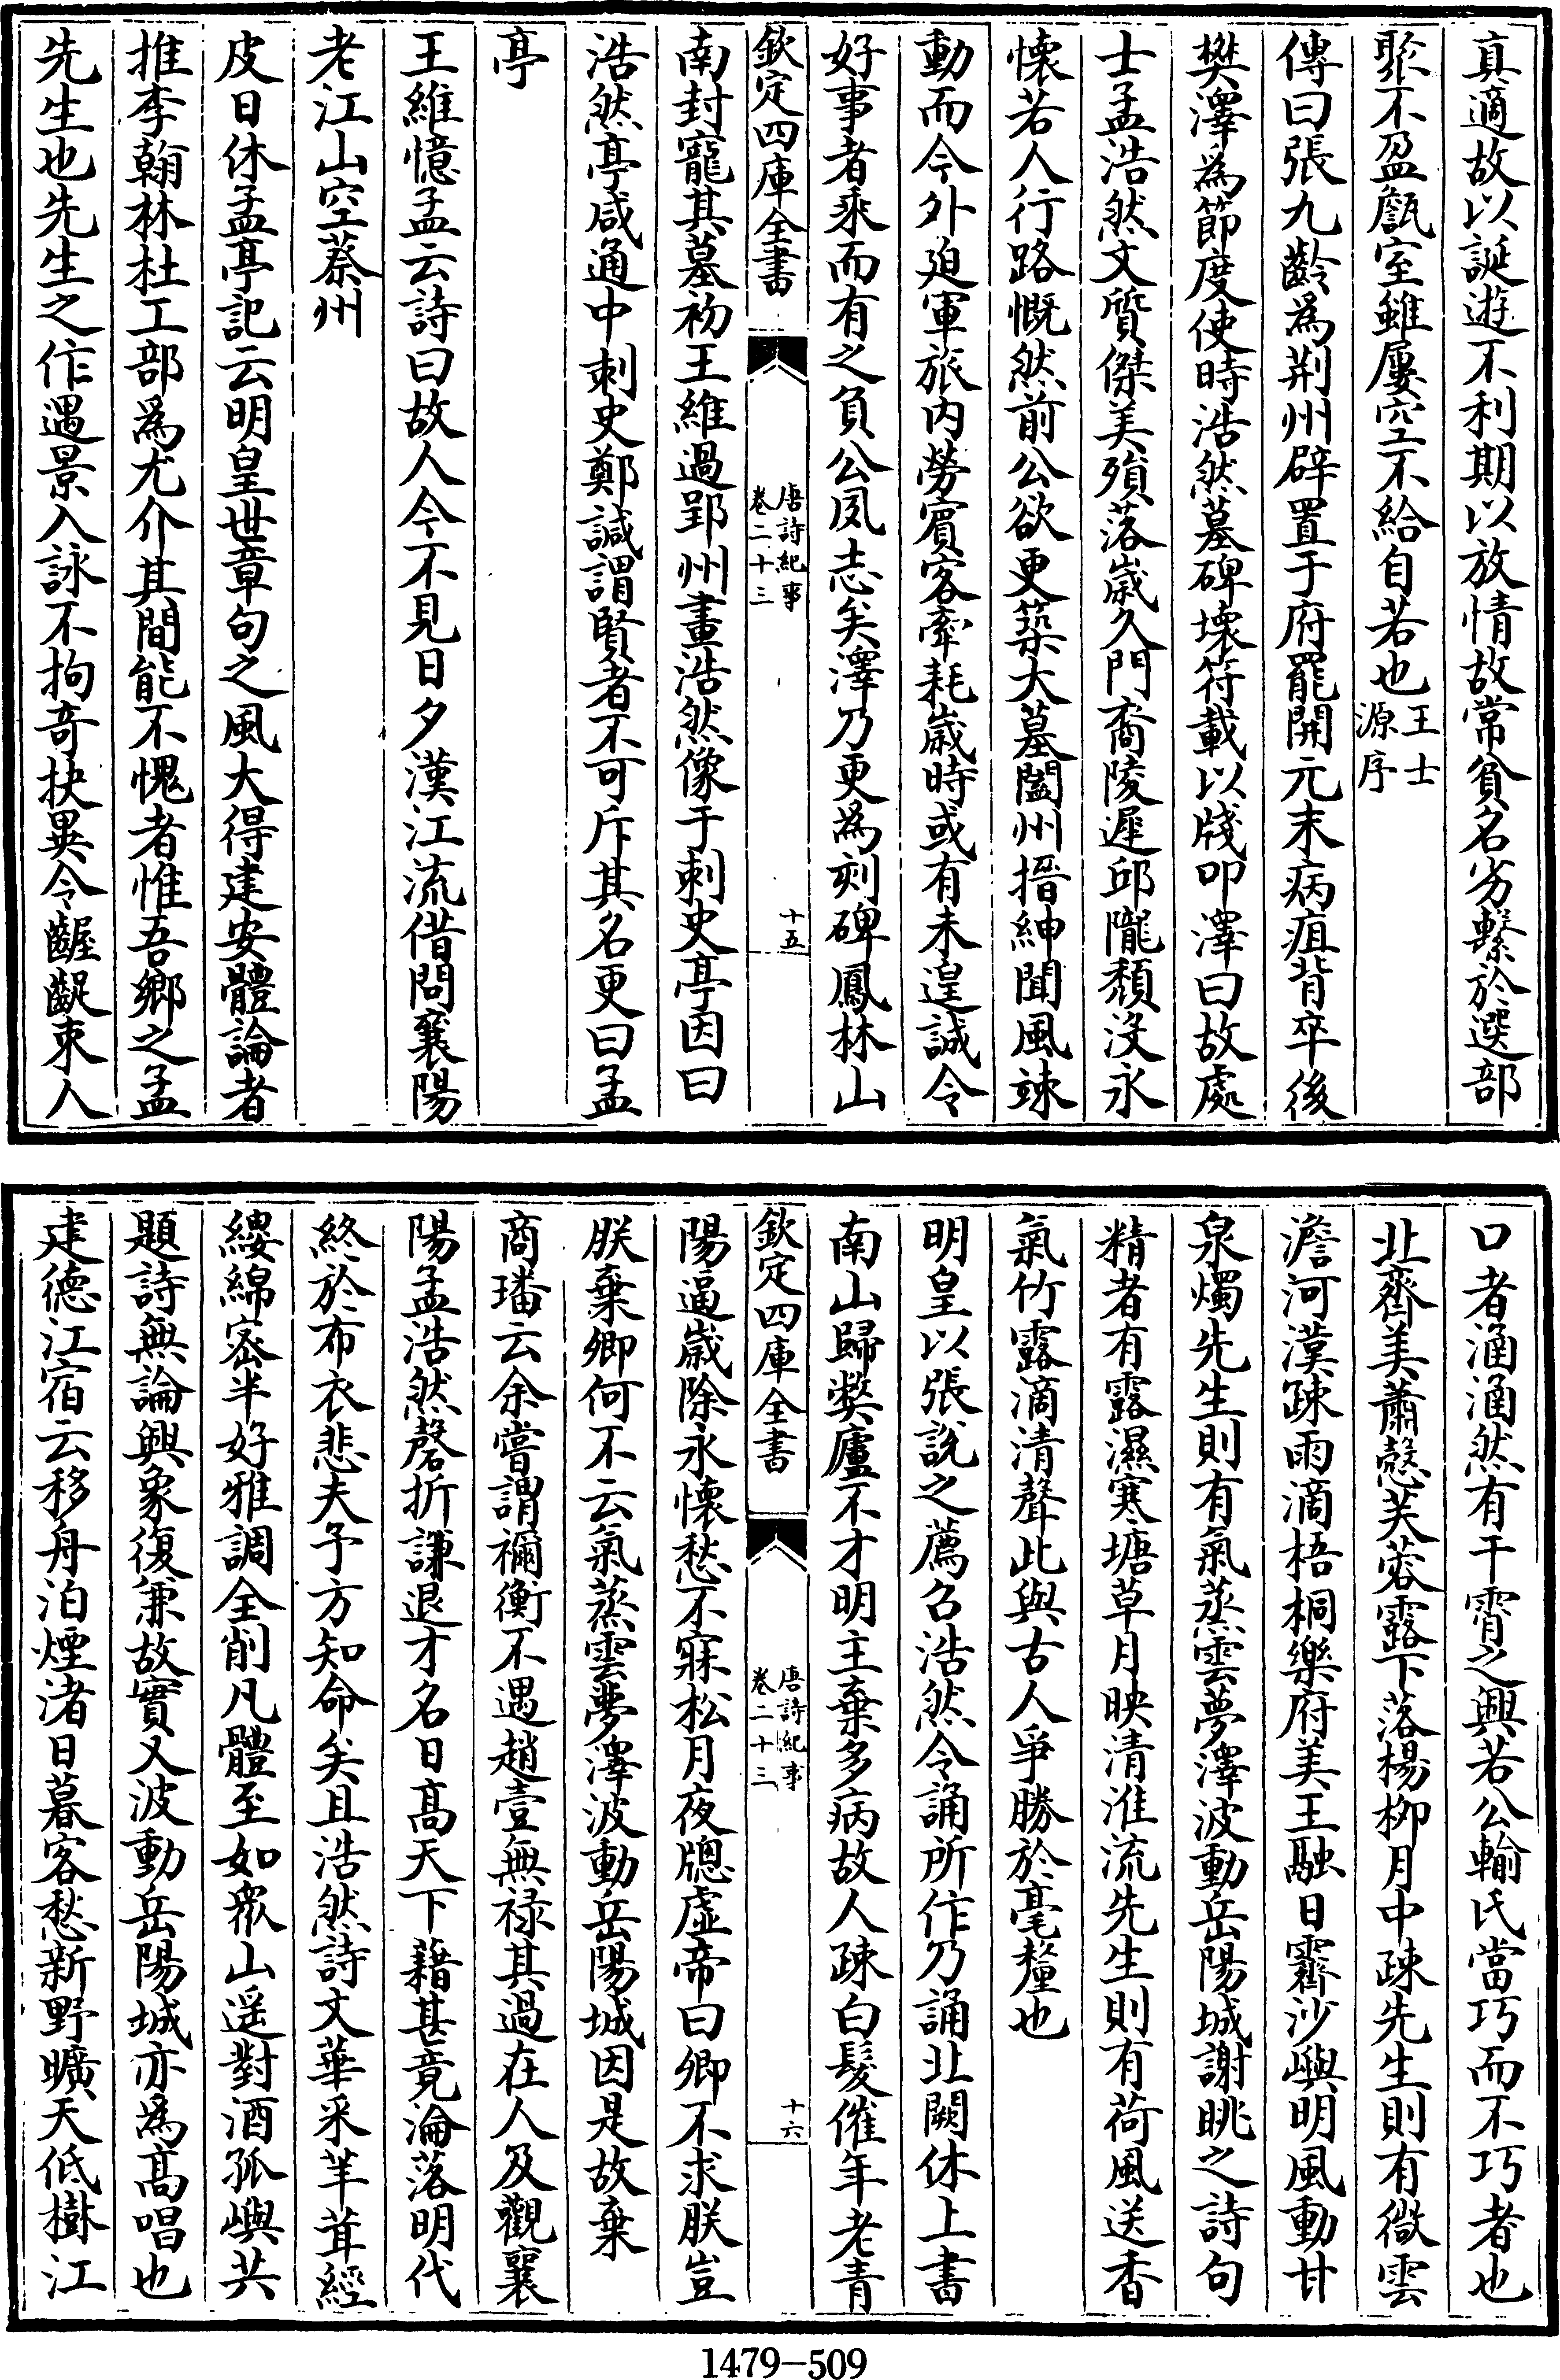 真適故以誕遊不利期以放情故常貧名劣繫於選部
聚不盈甔室雖屢空不給自若也王士源序
傳曰張九齡為荆州辟置于府罷開元末病疽背卒後
樊澤為節度使時浩然墓碑壞符載以牋叩澤曰故處
士孟浩然文質傑美殞落歲久門裔陵遲邱隴頹沒永
懷若人行路慨然前公欲更築大墓闔州搢紳聞風竦
動而今外迫軍旅内勞賓客牽耗歲時或有未遑誠令
好事者乘而有之負公夙志矣澤乃更為刻碑鳳林山
欽定四庫全書
唐詩紀事
卷二十三
十五
南封寵其墓初王維過郢州畫浩然像于刺史亭因曰
浩然亭咸通中刺史鄭諴謂賢者不可斥其名更曰孟
亭
王維憶孟云詩曰故人今不見日夕漢江流借問襄陽
老江山空蔡州
皮日休孟亭記云明皇世章句之風大得建安體論者
推李翰林杜工部為尤介其間能不愧者惟吾鄉之孟
先生也先生之作遇景入詠不拘奇抉異令齷齪束人
口者涵涵然有干霄之興若公輸氏當巧而不巧者也
北齊美蕭慤芙蓉露下落楊柳月中疎先生則有微雲
澹河漢疎雨滴梧桐樂府美王融日霽沙嶼明風動甘
泉燭先生則有氣蒸雲夢澤波動岳陽城謝眺之詩句
精者有露濕寒塘草月映清淮流先生則有荷風送香
氣竹露滴清聲此與古人爭勝於毫釐也
明皇以張說之薦召浩然令誦所作乃誦北闕休上書
南山歸獘廬不才明主棄多病故人疎白髮催年老青
欽定四庫全書
唐詩紀事
卷二十三
十六
陽逼歲除永懷愁不寐松月夜牕虛帝曰卿不求朕豈
朕棄卿何不云氣蒸雲夢澤波動岳陽城因是故棄
商璠云余嘗謂禰衡不遇趙壹無禄其過在人及觀襄
陽孟浩然磬折謙退才名日髙天下籍甚竟淪落明代
終於布衣悲夫予方知命矣且浩然詩文華采丰茸經
緯綿密半好雅調全削凡體至如衆山遥對酒孤嶼共
題詩無論興象復兼故實又波動岳陽城亦為髙唱也
建德江宿云移舟泊煙渚日暮客愁新野曠天低樹江
1479-509